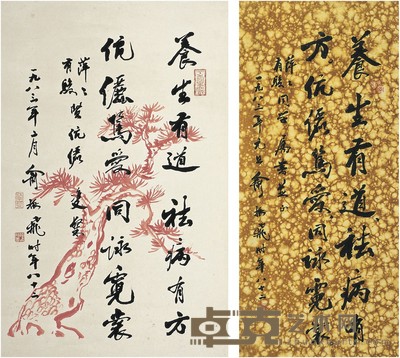 養生有道祛病有方
伉儷篤愛同詠霓裳
萍之
有駿賢伉儷
一九八三年二月俞振飛時年八十二
養生有道祛病有
方伉儷篤愛同詠霓裳
萍之
有駿同
一九八三年俞振飛時年八十二